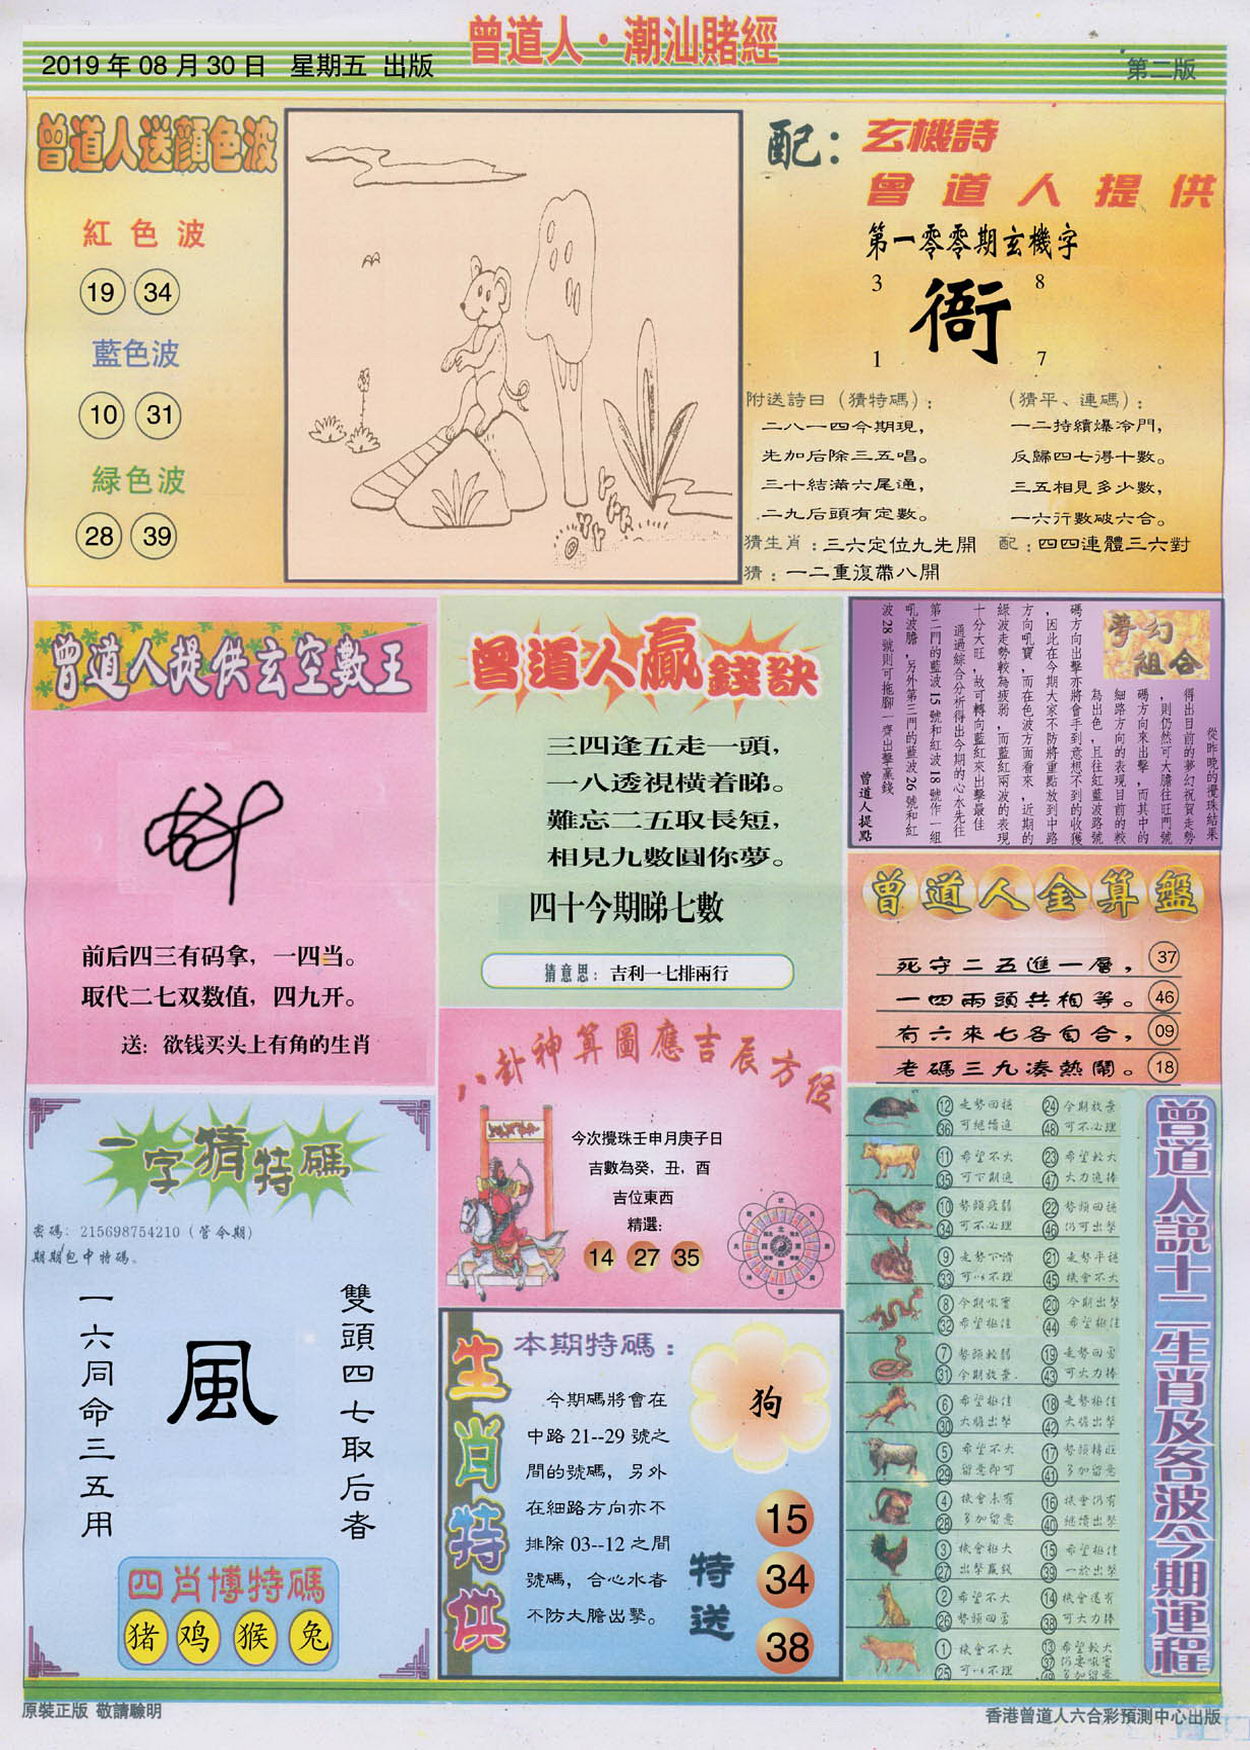 曾道人·潮汕賭經
2019年08月30日 星期五 出版
第二版
曾道人送顔色波
紅色波
19 34
藍色波
10 31
緑色波
28 39
配：玄機詩
曾道人提供
第一零零期玄機字
3 8
衙
1 7
附送詩曰（猜特碼）：
二八一四今期現，
先加后除三五唱。
三十結滿六尾通，
二九后頭有定數。
（猜平、連碼）：
一二持續爆冷門，
反歸四七得十數。
三五相見多少數，
一六行數破六合。
猜生肖：三六定位九先開 配：四四連體三六對
猜：一二重復帶八開
曾道人提供玄空數王
前后四三有码拿，一四当。
取代二七双数值，四九开。
送：欲钱买头上有角的生肖
曾道人贏錢訣
三四逢五走一頭，
一八透視横着睇。
難忘二五取長短，
相見九數圓你夢。
四十今期睇七數
猜意思：吉利一七排兩行
夢幻
組合
從昨晚的攪珠結果
得出目前的夢幻祝賀走勢
，則仍然可大膽往旺門號
碼方向來出擊，而其中的
細路方向的表現目前的較
為出色，且往紅藍波路號
碼方向出擊亦將會手到意想不到的收獲
，因此在今期大家不防將重點放到中路
方向吼寶，而在色波方面看來，近期的
綠波走勢較為疲弱，而藍紅兩波的表現
十分大旺，故可轉向藍紅來出擊最佳
通過綜合分析得出今期的心水先往
第二門的藍波15號和紅波18號作一組
吼波膽，另外第三門的藍波26號和紅
波28號則可拖腳一齊出擊贏錢
曾道人提點
曾道人金算盤
死守二五進一層，37
一四兩頭共相等。46
有六來七各自合，09
老碼三九凑熱鬧。18
八卦神算圖應吉辰方位
今次攪珠壬申月庚子日
吉數為癸，丑，酉
吉位東西
精選：
14 27 35
一字猜特碼
密碼：215698754210（管令期）
期期包中特碼。
雙頭四七取后者
風
一六同命三五用
四肖博特碼
猪 鸡 猴 兔
生肖特供
本期特碼：
今期碼將會在
中路21--29號之
間的號碼，另外
在細路方向亦不
排除03--12之間
號碼，合心水者
不防大膽出擊。
狗
特送
15
34
38
曾道人説十二生肖及各波今期運程
12 走勢回穩 24 今期放棄
36 可繼續追 48 可不必理
11 希望不大 23 希望較大
35 可下期追 47 大力追捧
10 勢頭疲弱 22 勢頭回穩
34 可不必理 46 仍可出擊
9 走勢下滑 21 走勢平穩
33 可以不理 45 機會不大
8 今期吼寶 20 今期出擊
32 希望極佳 44 希望極佳
7 勢頭較弱 19 走勢回勇
31 今期放棄 43 可大力捧
6 希望極佳 18 走勢極佳
30 大膽出擊 42 大膽出擊
5 希望不大 17 勢頭轉旺
29 留意即可 41 多加留意
4 機會未有 16 機會仍有
28 多加留意 40 繼續出擊
3 機會極大 15 希望極佳
27 出擊贏錢 39 一於出擊
2 希望不大 14 機會還有
26 勢頭回勇 38 可大力捧
1 機會不大 13 希望較大
25 可以不理 37 仍要吼寶
49 多加留意
原裝正版 敬請驗明
香港曾道人六合彩預測中心出版